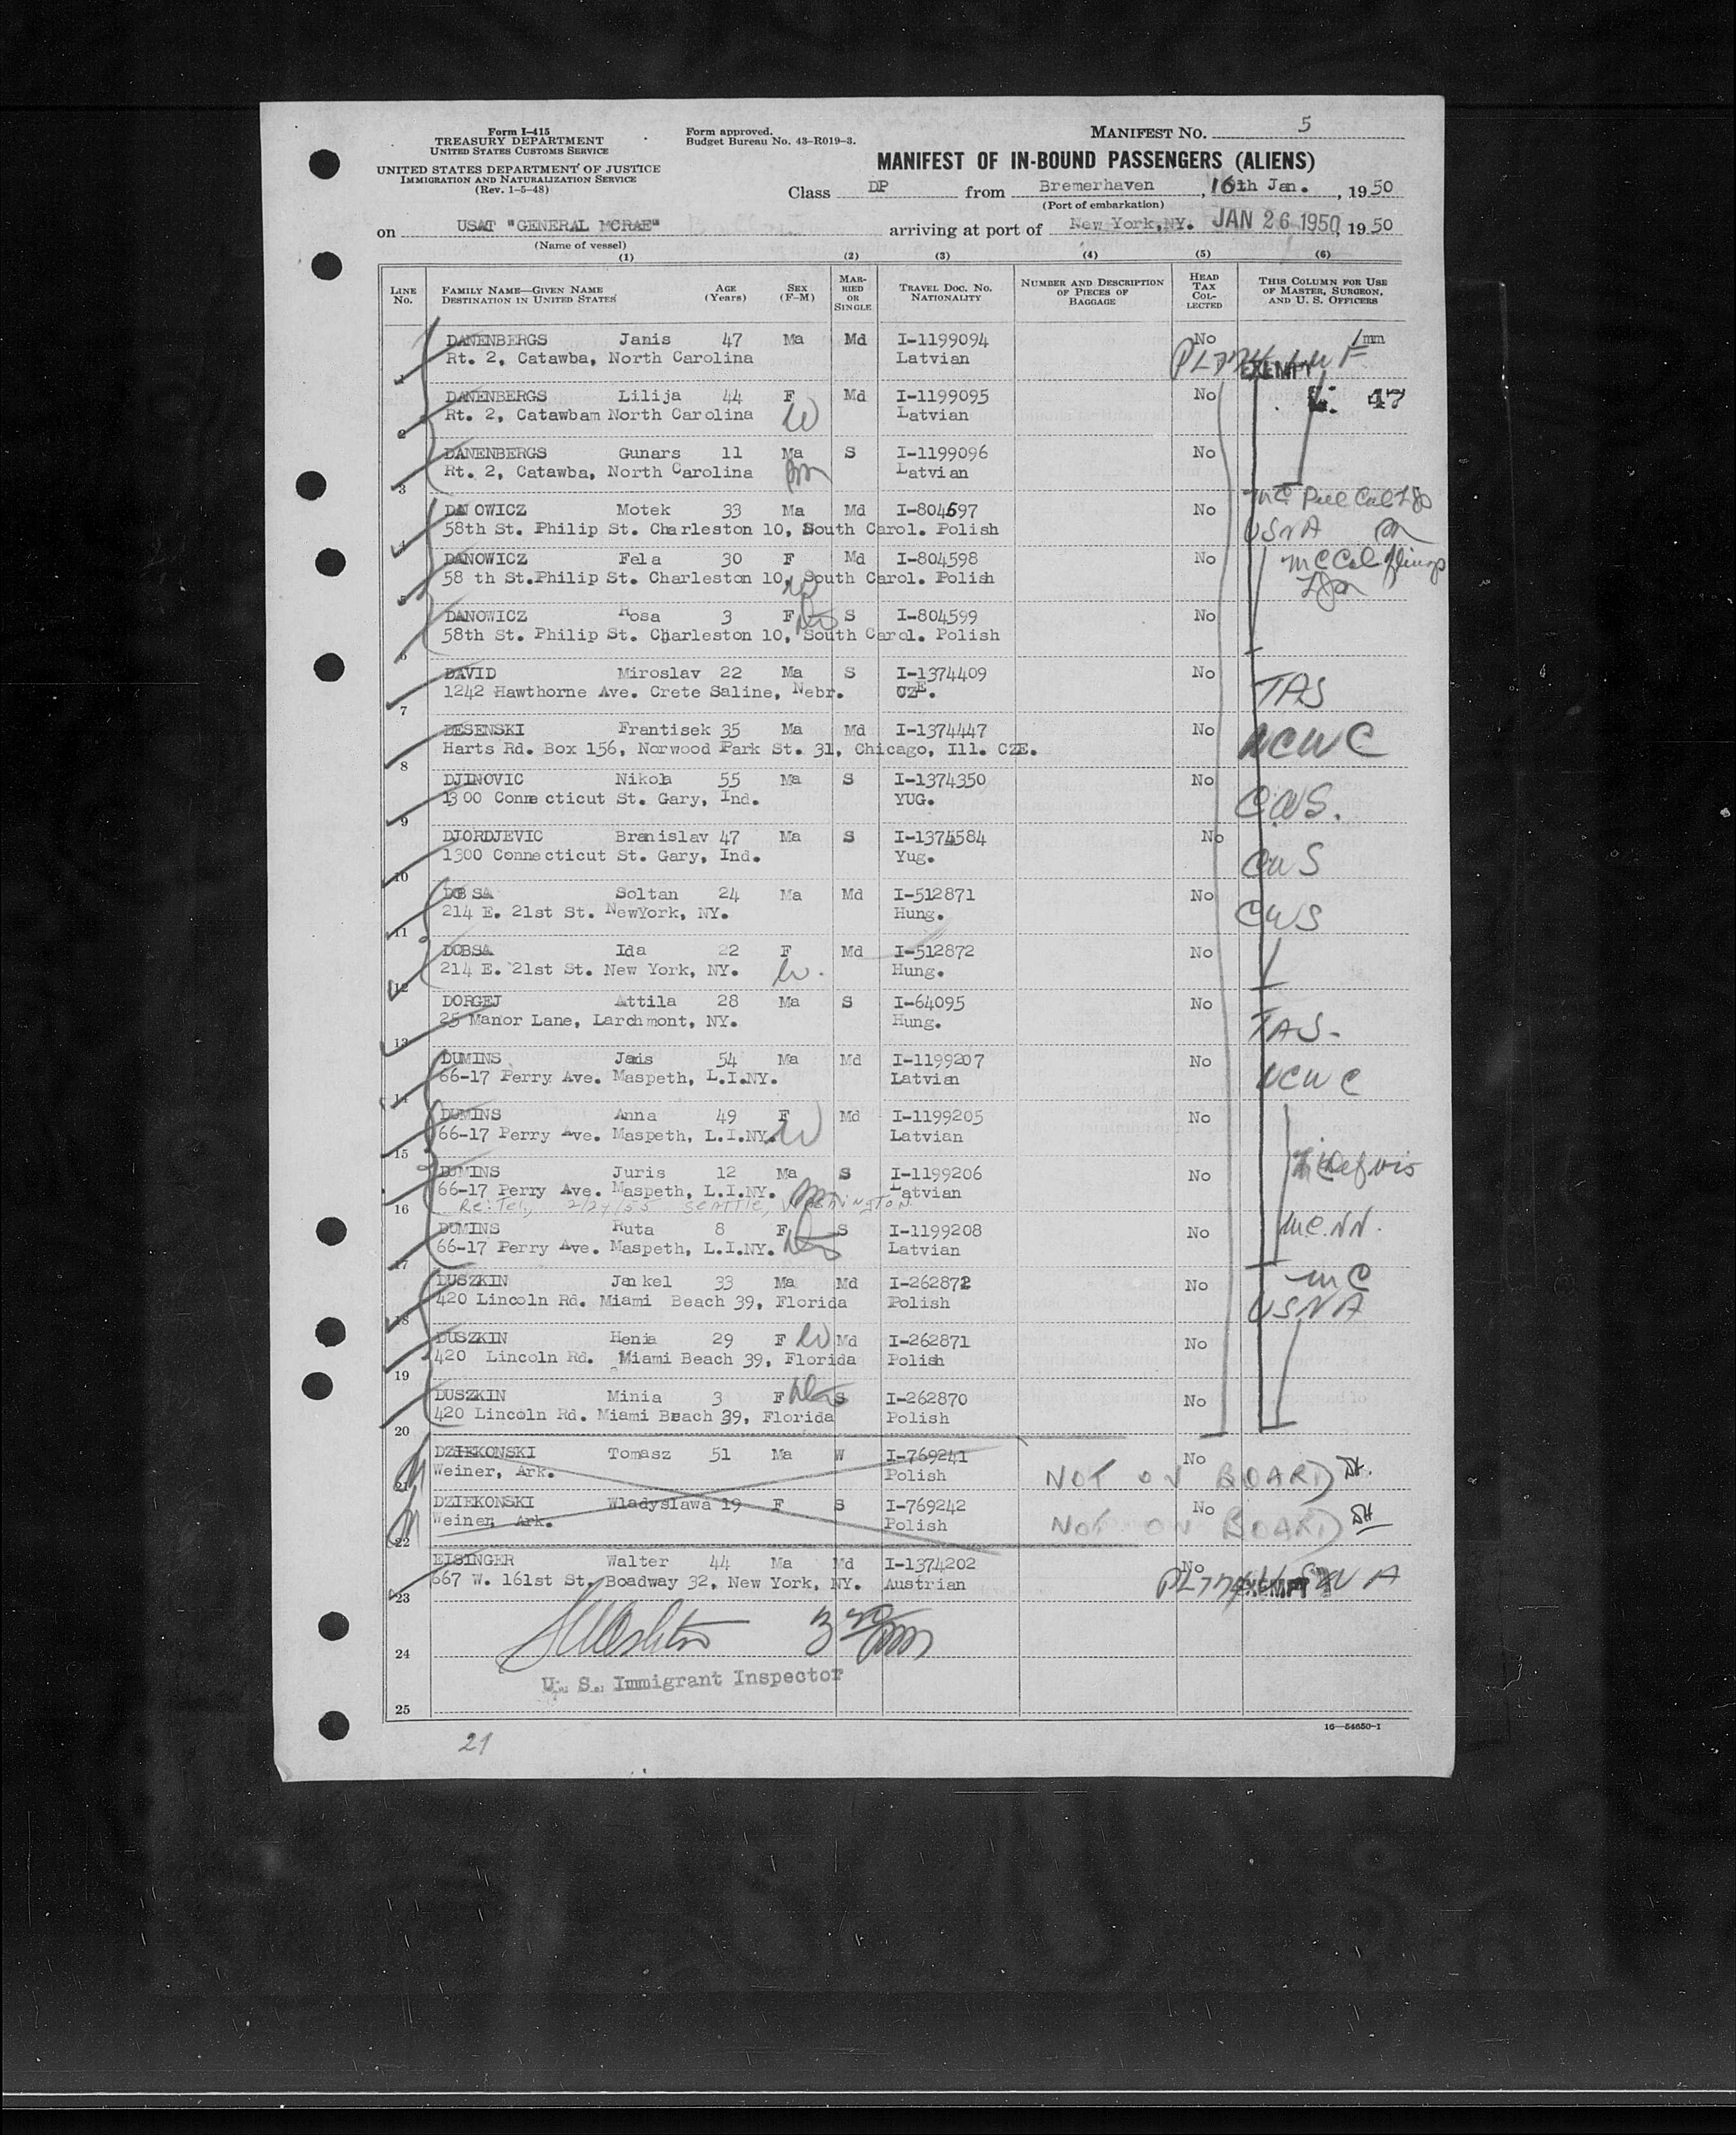 Form I-415
TREASURY DEPARTMENT
UNITED STATES CUSTOMS SERVICE
UNITED STATES DEPARTMENT OF JUSTICE
IMMIGRATION AND NATURALIZATION SERVICE
(Rev. 1-5-48)
Form approved.
Budget Bureau No. 43-R019-3.
MANIFEST No. 5
MANIFEST OF IN-BOUND PASSENGERS (ALIENS)
Class DP from Bremerhaven, 16th Jan., 1950
(Port of embarkation)
on USAT "GENERAL MCRAE" arriving at port of New York, NY. JAN 26 1950, 1950
(Name of vessel)
(1) (2) (3) (4) (5) (6)
LINE No. FAMILY NAME—GIVEN NAME DESTINATION IN UNITED STATES AGE (Years) SEX (F-M) MARRIED OR SINGLE TRAVEL DOC. NO. NATIONALITY NUMBER AND DESCRIPTION OF PIECES OF BAGGAGE HEAD TAX COLLECTED THIS COLUMN FOR USE OF MASTER, SURGEON, AND U. S. OFFICERS
1 DANENBERGS Janis 47 Ma Md I-1199094 No
Rt. 2, Catawba, North Carolina Latvian EXEMPT
2 DANENBERGS Lilija 44 F Md I-1199095 No 47
Rt. 2, Catawbam North Carolina W Latvian
3 DANENBERGS Gunars 11 Ma S I-1199096 No
Rt. 2, Catawba, North Carolina Latvian
4 DANOWICZ Motek 33 Ma Md I-804597 No
58th St. Philip St. Charleston 10, South Carol. Polish USNA
5 DANOWICZ Fela 30 F Md I-804598 No
58 th St.Philip St. Charleston 10, South Carol. Polish
6 DANOWICZ Rosa 3 F S I-804599 No
58th St. Philip St. Charleston 10, South Carol. Polish
7 DAVID Miroslav 22 Ma S I-1374409 No TAS
1242 Hawthorne Ave. Crete Saline, Nebr. CZE.
8 DESENSKI Frantisek 35 Ma Md I-1374447 No NCWC
Harts Rd. Box 156, Norwood Park St. 31, Chicago, Ill. CZE.
9 DJINOVIC Nikola 55 Ma S I-1374350 No CWS.
1300 Connecticut St. Gary, Ind. YUG.
10 DJORDJEVIC Branislav 47 Ma S I-1374584 No CWS
1300 Connecticut St. Gary, Ind. Yug.
11 DOBSA Soltan 24 Ma Md I-512871 No CWS
214 E. 21st St. NewYork, NY. Hung.
12 DOBSA Ida 22 F Md I-512872 No
214 E. 21st St. New York, NY. W. Hung.
13 DORGEJ Attila 28 Ma S I-64095 No TAS-
25 Manor Lane, Larchmont, NY. Hung.
14 DUMINS Janis 54 Ma Md I-1199207 No NCWC
66-17 Perry Ave. Maspeth, L.I.NY. Latvian
15 DUMINS Anna 49 F Md I-1199205 No
66-17 Perry Ave. Maspeth, L.I.NY. W Latvian
16 DUMINS Juris 12 Ma S I-1199206 No
66-17 Perry Ave. Maspeth, L.I.NY. Latvian
SEATTLE, WASHINGTON
17 DUMINS Ruta 8 F S I-1199208 No
66-17 Perry Ave. Maspeth, L.I.NY. Latvian
18 DUSZKIN Jankel 33 Ma Md I-262872 No
420 Lincoln Rd. Miami Beach 39, Florida Polish USNA
19 DUSZKIN Henia 29 F W Md I-262871 No
420 Lincoln Rd. Miami Beach 39, Florida Polish
20 DUSZKIN Minia 3 F S I-262870 No
420 Lincoln Rd. Miami Beach 39, Florida Polish
21 DZIEKONSKI Tomasz 51 Ma W I-769241 No
Weiner, Ark. Polish NOT ON BOARD
22 DZIEKONSKI Wladyslawa 19 F S I-769242 No
Weiner, Ark. Polish NOT ON BOARD
23 EISINGER Walter 44 Ma Md I-1374202 No
667 W. 161st St. Boadway 32, New York, NY. Austrian EXEMPT
24
U. S. Immigrant Inspector
25
16—54650-1
21